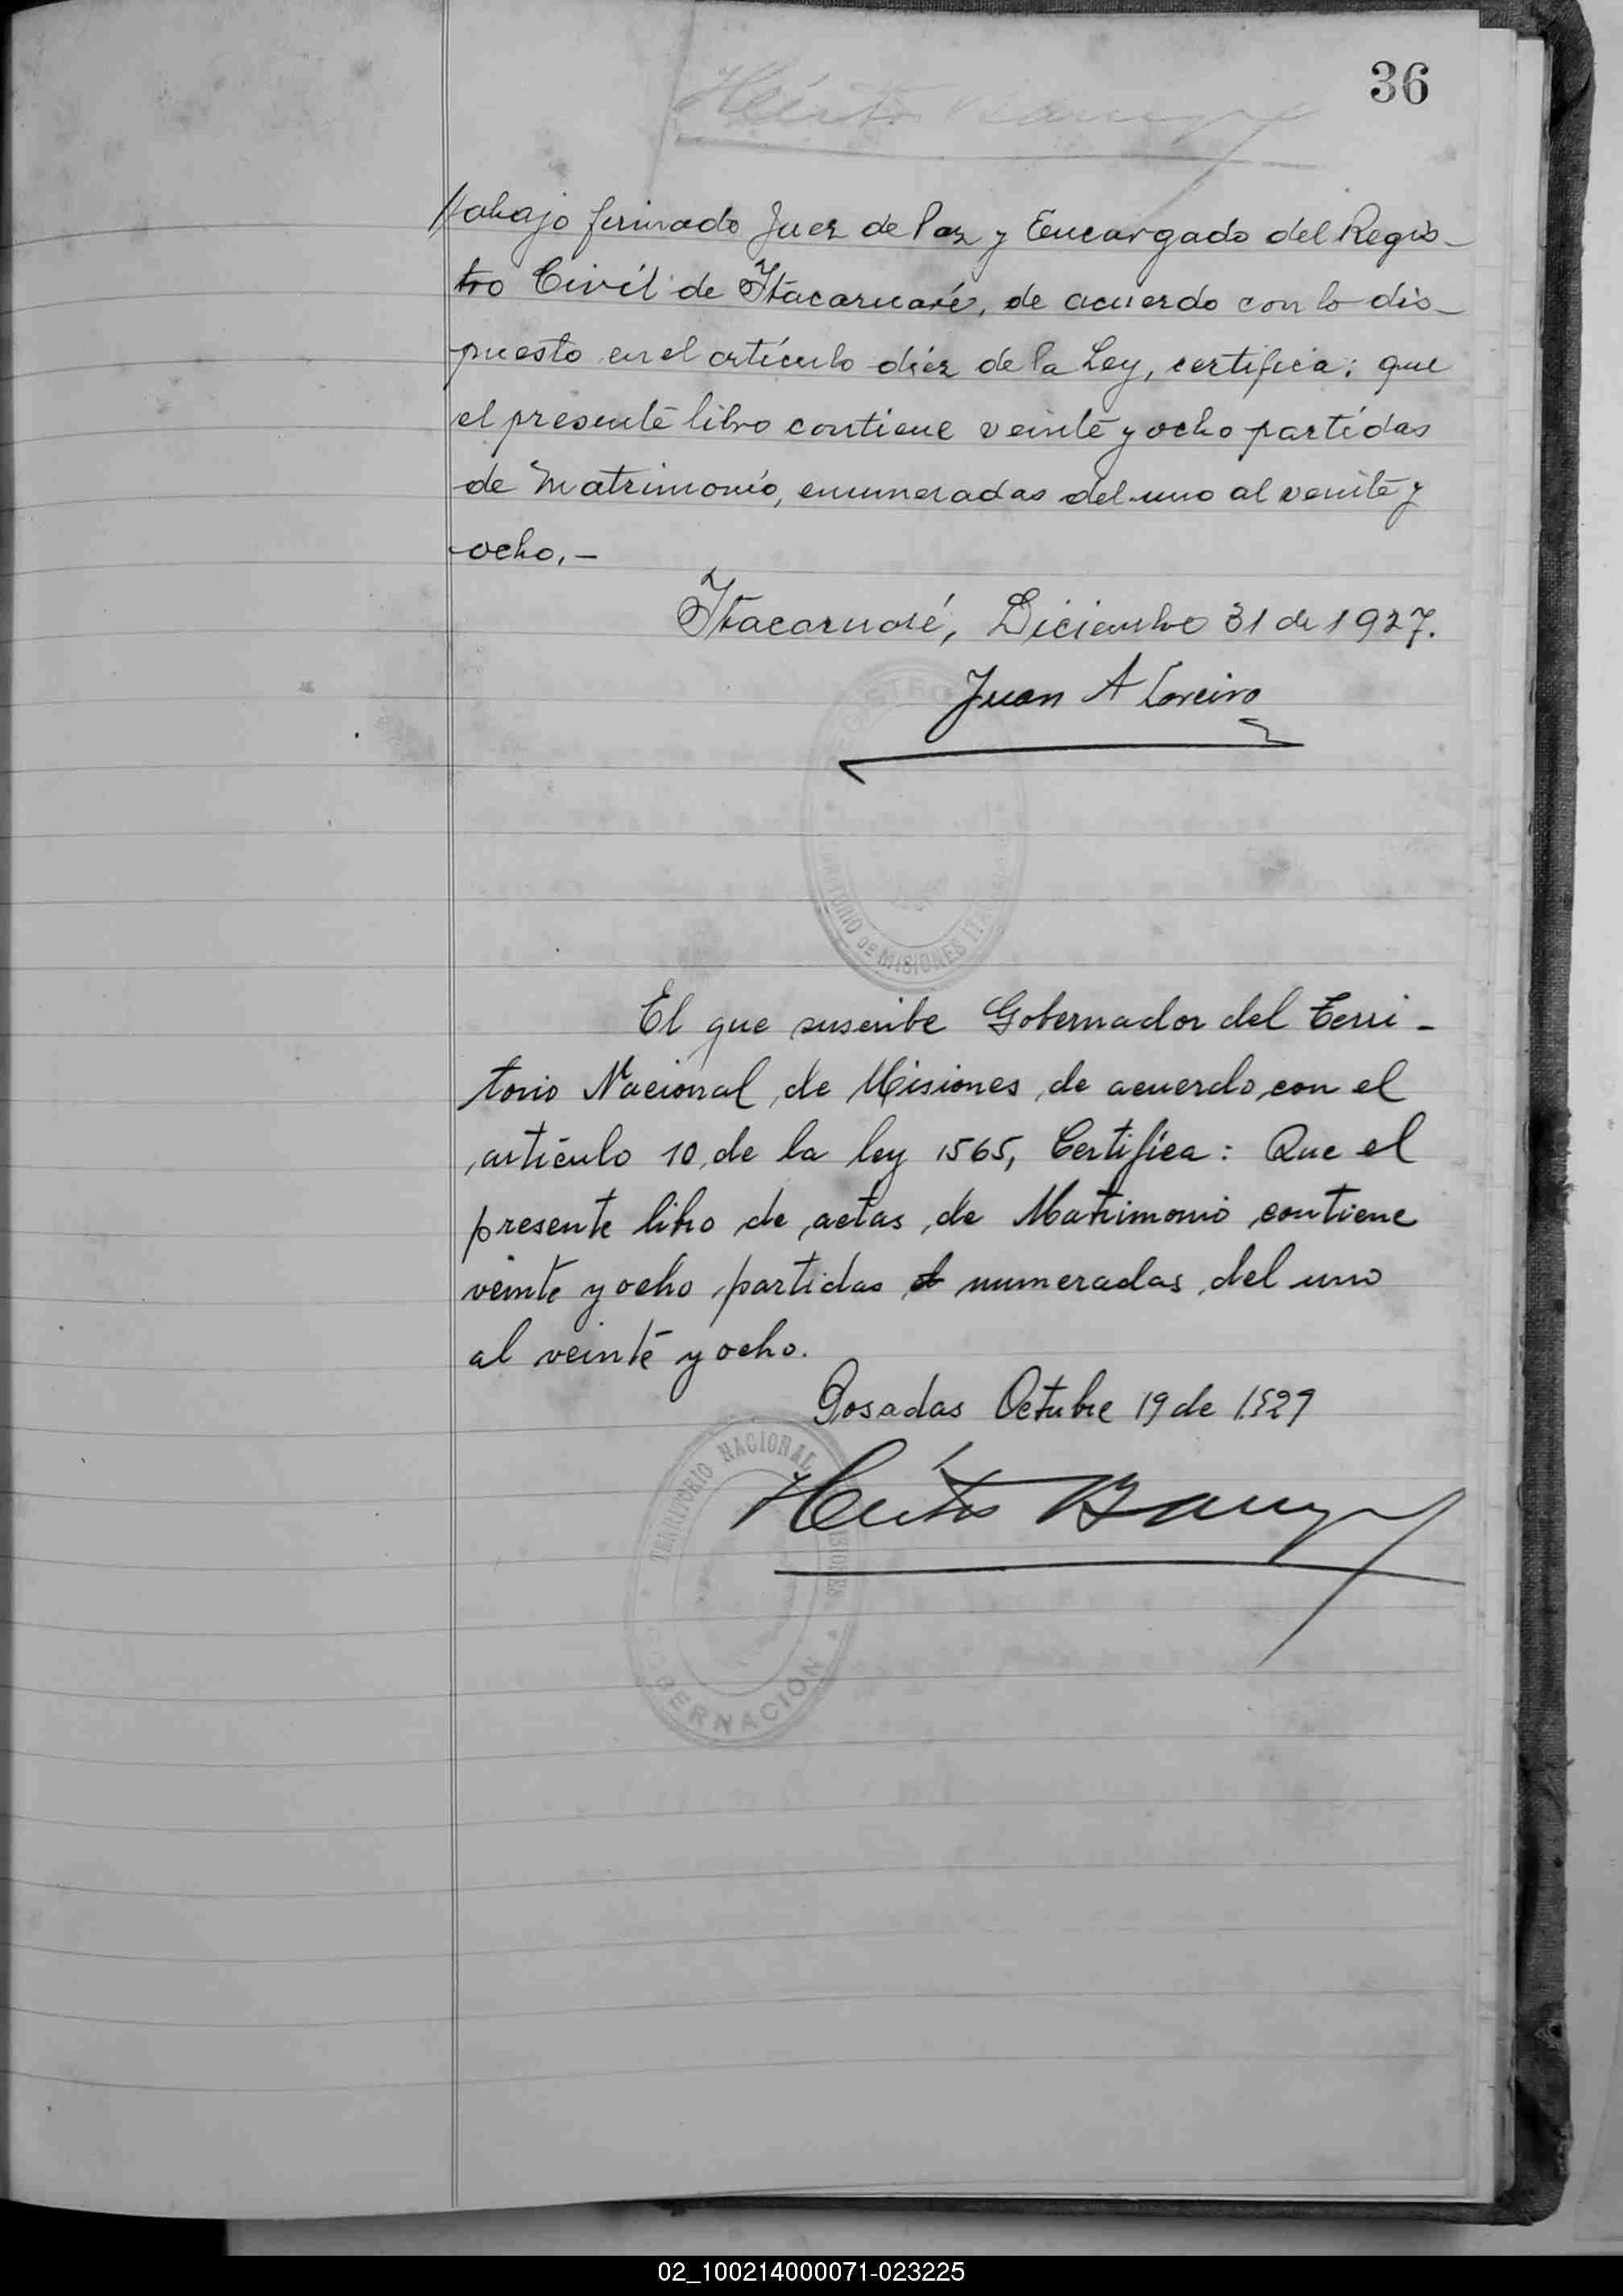 36
Héctor Barreyro
//abajo firmado Juez de Paz y Encargado del Regis-
tro Civil de Itacaruaré, de acuerdo con lo dis-
puesto en el artículo diez de la Ley, certifica: que
el presente libro contiene veinte y ocho partidas
de Matrimonio, enumeradas del uno al veinte y
ocho.-
Itacaruaré, Diciembre 31 de 1927.
Juan A Loreiro
TERRITORIO DE MISIONES
El que suscribe Gobernador del Terri-
torio Nacional de Misiones de acuerdo con el
artículo 10 de la ley 1565, Certifica: Que el
presente libro de actas de Matrimonio contiene
veinte y ocho partidas numeradas del uno
al veinte y ocho.
Posadas Octubre 19 de 1929
TERRITORIO NACIONAL MISIONES
GOBERNACION
Héctor Barreyro
02_100214000071-023225